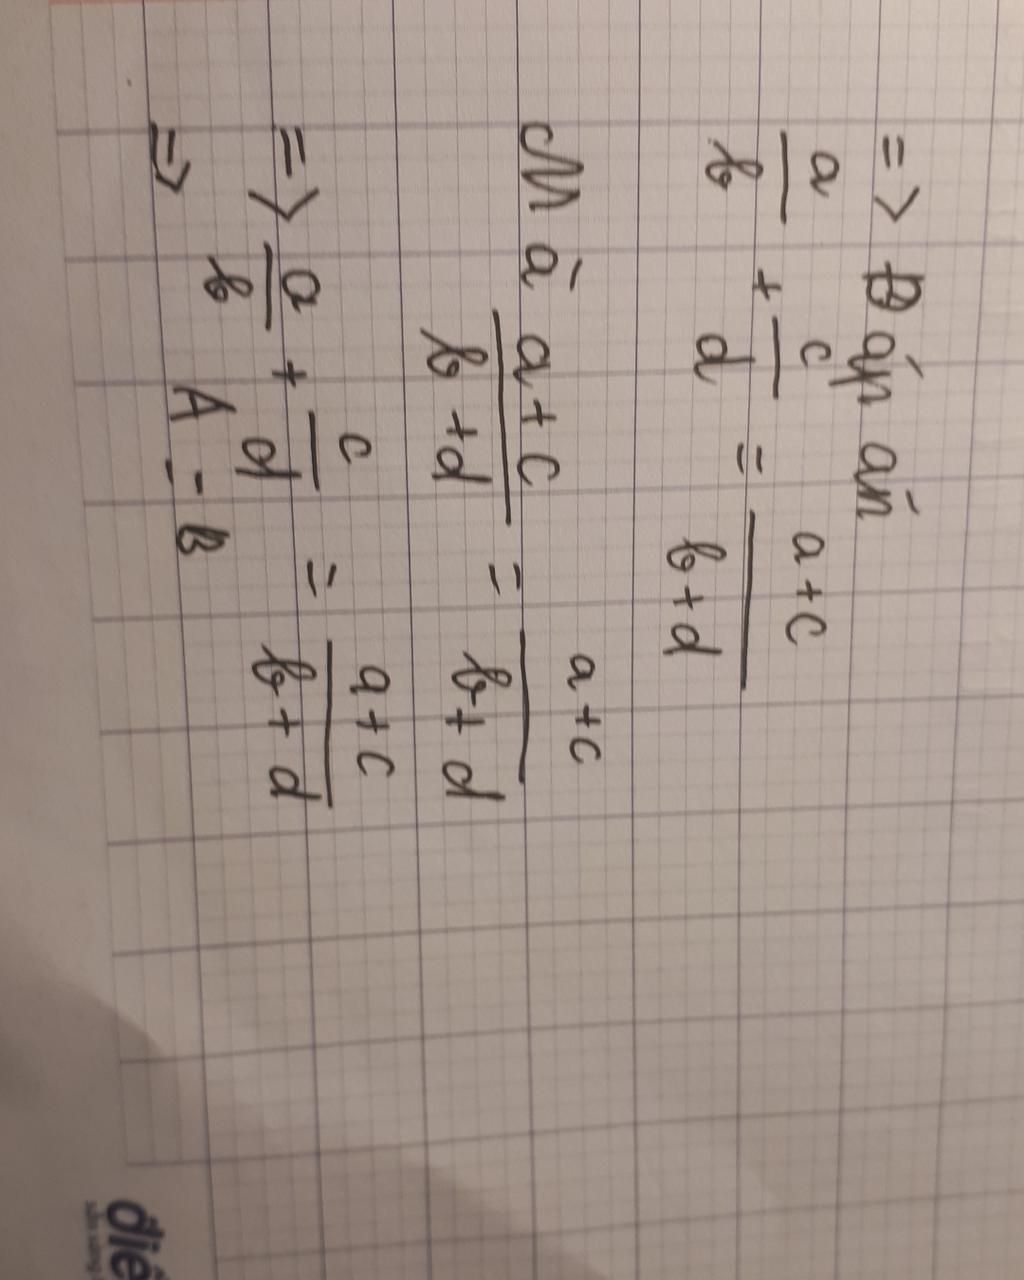 => Đáp án
a/b + c/d = a+c/b+d
Mà a+c/b+d = a+c/b+d
=> a/b + c/d = a+c/b+d
=> A = B
điề